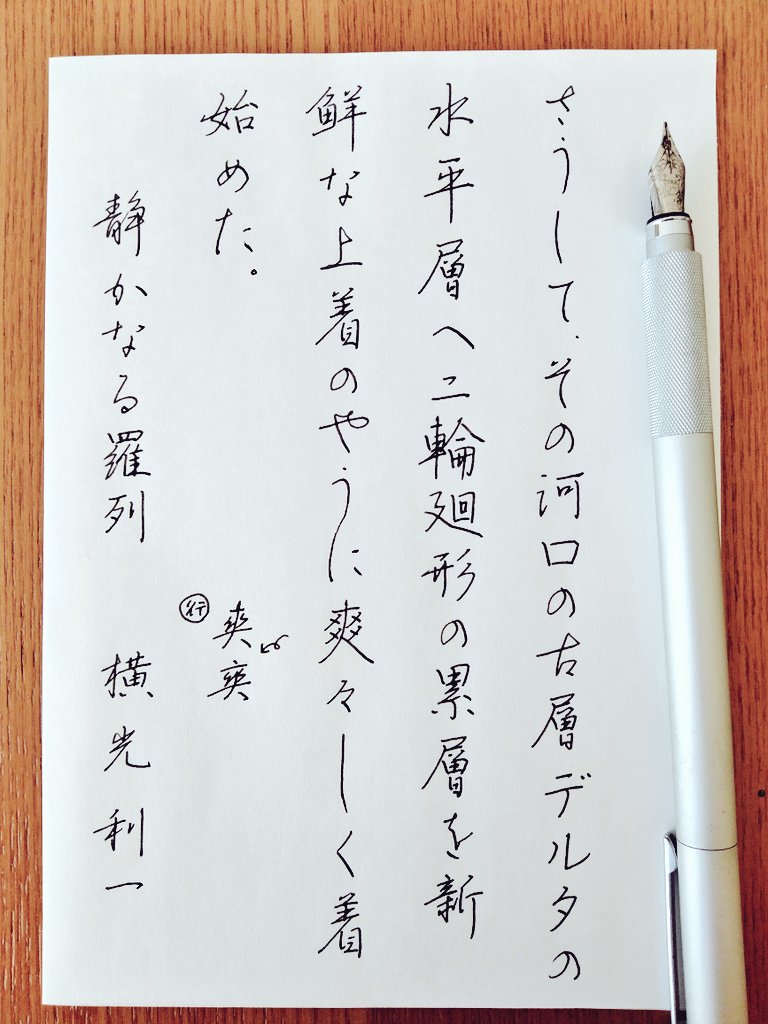 さうして、その河口の古層デルタの
水平層へ二輪廻形の累層を新
鮮な上着のやうに爽々しく着
始めた。
行 爽 爽
静かなる羅列 横光利一